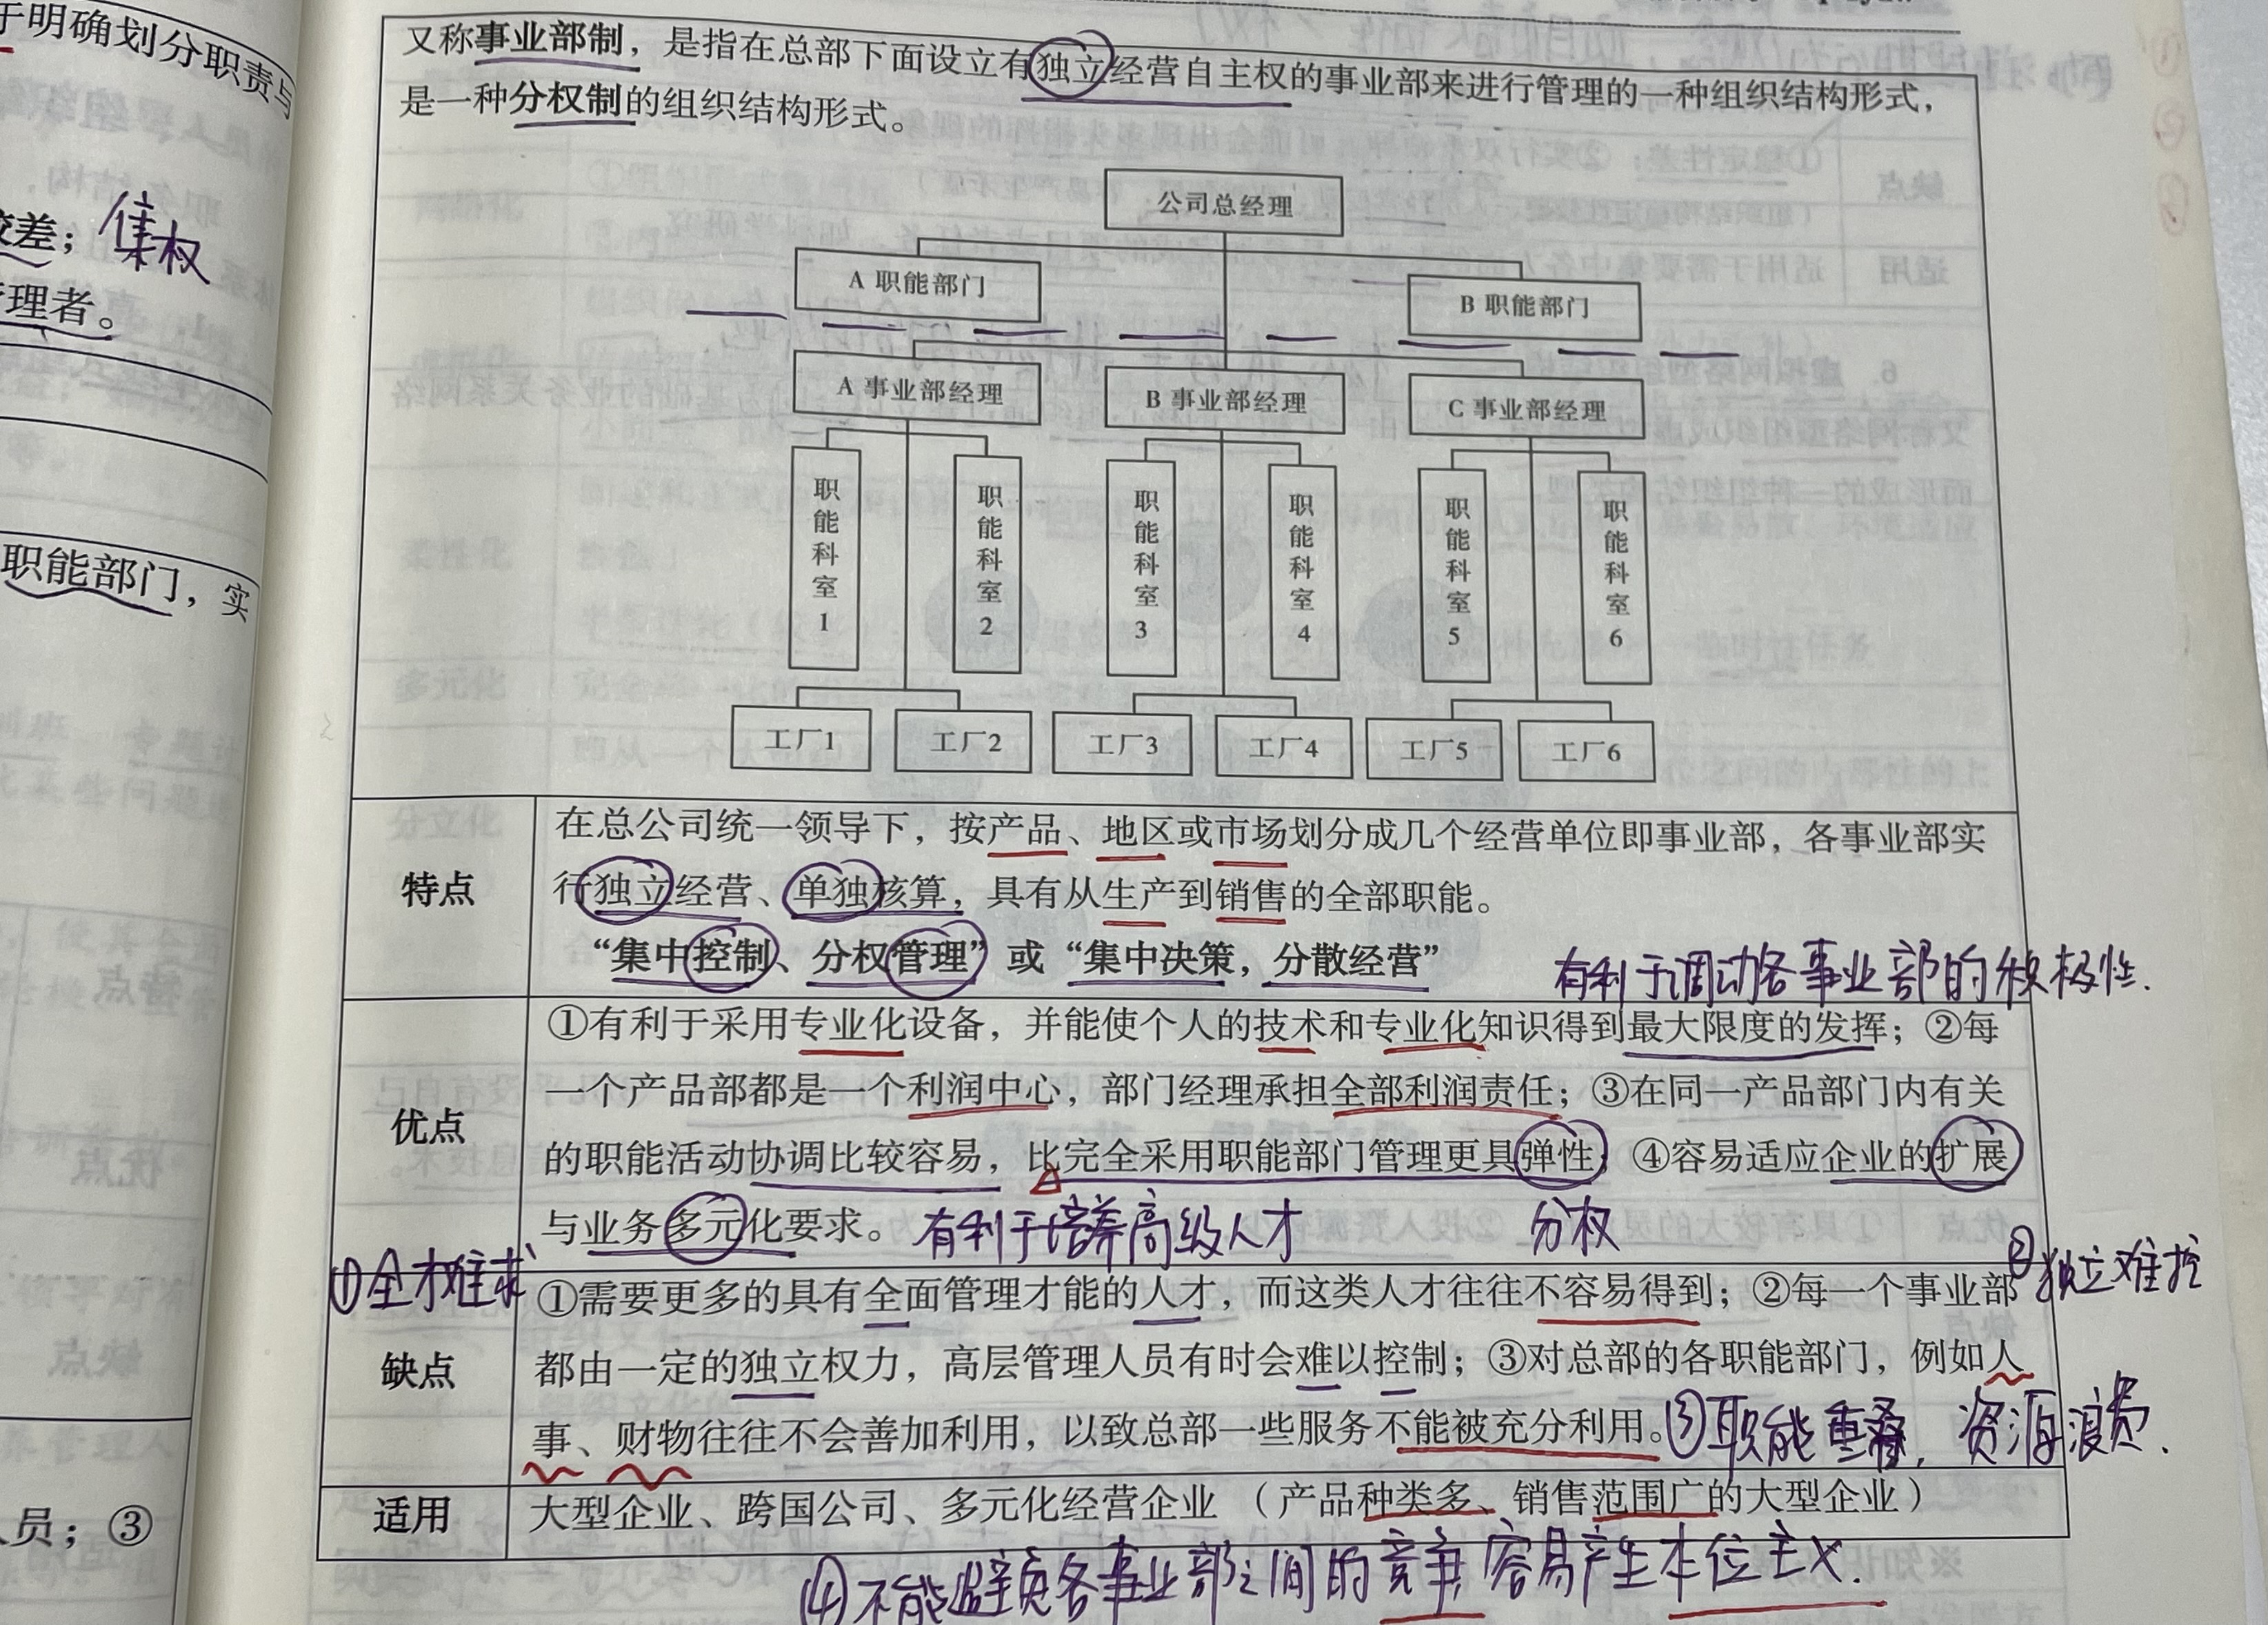 又称事业部制，是指在总部下面设立有独立经营自主权的事业部来进行管理的一种组织结构形式，
是一种分权制的组织结构形式。
公司总经理
A 职能部门
B 职能部门
A 事业部经理
B 事业部经理
C 事业部经理
职能科室1
职能科室2
职能科室3
职能科室4
职能科室5
职能科室6
工厂1
工厂2
工厂3
工厂4
工厂5
工厂6
特点
在总公司统一领导下，按产品、地区或市场划分成几个经营单位即事业部，各事业部实
行独立经营、单独核算，具有从生产到销售的全部职能。
“集中控制、分权管理”或“集中决策，分散经营”
有利于调动各事业部的积极性.
优点
①有利于采用专业化设备，并能使个人的技术和专业化知识得到最大限度的发挥；②每
一个产品部都是一个利润中心，部门经理承担全部利润责任；③在同一产品部门内有关
的职能活动协调比较容易，比完全采用职能部门管理更具弹性；④容易适应企业的扩展
与业务多元化要求。
有利于培养高级人才
分权
①全才难求
②独立难控
缺点
①需要更多的具有全面管理才能的人才，而这类人才往往不容易得到；②每一个事业部
都由一定的独立权力，高层管理人员有时会难以控制；③对总部的各职能部门，例如人
事、财物往往不会善加利用，以致总部一些服务不能被充分利用。
③职能重叠，资源浪费.
适用
大型企业、跨国公司、多元化经营企业（产品种类多、销售范围广的大型企业）
④不能避免各事业部之间的竞争 容易产生本位主义.
于明确划分职责与
较差；
集权
管理者。
等。
职能部门，实
人员；③